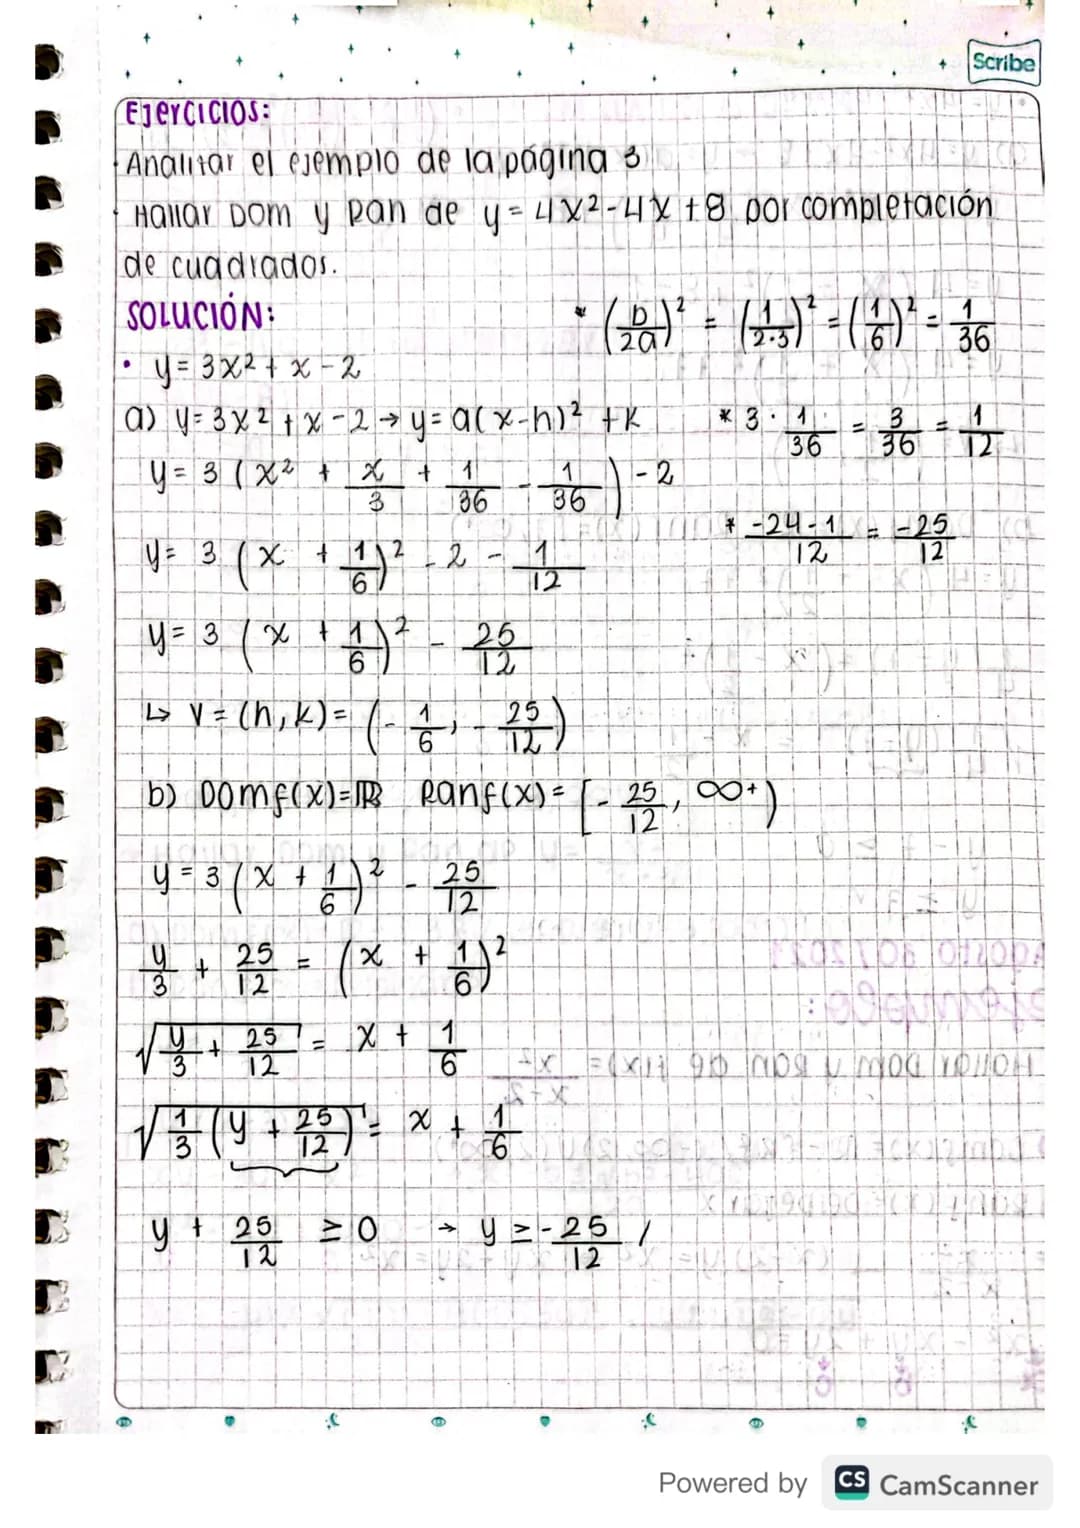 Scribe
Ejercicios:
Analitar el ejemplo de la página 3
Hallar Dom y Ran de y = 4x² - 4x + 8 por completación
de cuadrados.
SOLUCIÓN:
* (b/2a)² = (1/2·3)² = (1/6)² = 1/36
• y = 3x² + x - 2
a) y = 3x² + x - 2 → y = a(x-h)² + k
* 3 · 1/36 = 3/36 = 1/12
y = 3 (x² + x/3 + 1/36 - 1/36) - 2
* -24-1/12 = -25/12
y = 3 (x + 1/6)² - 2 - 1/12
y = 3 (x + 1/6)² - 25/12
↳ V = (h,k) = (-1/6, -25/12)
b) Domf(x)=ℝ Ranf(x) = [-25/12, ∞+)
y = 3 (x + 1/6)² - 25/12
y/3 + 25/12 = (x + 1/6)²
√(y/3 + 25/12) = x + 1/6
√(1/3 (y + 25/12)) = x + 1/6
y + 25/12 ≥ 0 → y ≥ -25/12 /
Powered by CS CamScanner